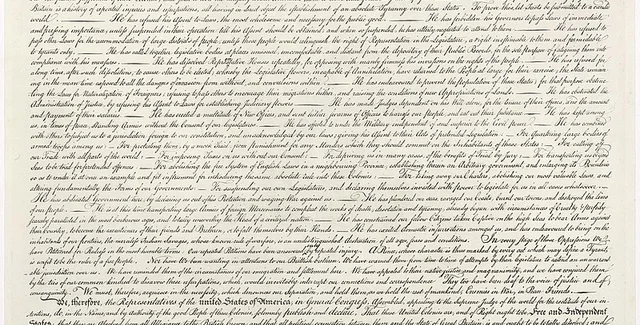 Britain is a history of repeated injuries and usurpations, all having in direct object the establishment of an absolute Tyranny over these States. To prove this, let Facts be submitted to a candid
world. — He has refused his Assent to Laws, the most wholesome and necessary for the public good. — He has forbidden his Governors to pass Laws of immediate
and pressing importance, unless suspended in their operation till his Assent should be obtained; and when so suspended, he has utterly neglected to attend to them. — He has refused to
pass other Laws for the accommodation of large districts of people, unless those people would relinquish the right of Representation in the Legislature, a right inestimable to them and formidable
to tyrants only. — He has called together legislative bodies at places unusual, uncomfortable, and distant from the depository of their public Records, for the sole purpose of fatiguing them into
compliance with his measures. — He has dissolved Representative Houses repeatedly, for opposing with manly firmness his invasions on the rights of the people. — He has refused for a
long time, after such dissolutions, to cause others to be elected; whereby the Legislative powers, incapable of Annihilation, have returned to the People at large for their exercise; the State remain-
ing in the mean time exposed to all the dangers of invasion from without, and convulsions within. — He has endeavoured to prevent the population of these States; for that purpose obstruc-
ting the Laws for Naturalization of Foreigners; refusing to pass others to encourage their migrations hither, and raising the conditions of new Appropriations of Lands. — He has obstructed the
Administration of Justice, by refusing his Assent to Laws for establishing Judiciary powers. — He has made Judges dependent on his Will alone, for the tenure of their offices, and the amount
and payment of their salaries. — He has erected a multitude of New Offices, and sent hither swarms of Officers to harrass our people, and eat out their substance. — He has kept among
us, in times of peace, Standing Armies without the Consent of our legislatures. — He has affected to render the Military independent of and superior to the Civil power. — He has combined
with others to subject us to a jurisdiction foreign to our constitution, and unacknowledged by our laws; giving his Assent to their Acts of pretended Legislation: — For Quartering large bodies of
armed troops among us: — For protecting them, by a mock Trial, from punishment for any Murders which they should commit on the Inhabitants of these States: — For cutting off
our Trade with all parts of the world: — For imposing Taxes on us without our Consent: — For depriving us in many cases, of the benefits of Trial by Jury: — For transporting us beyond
Seas to be tried for pretended offences — For abolishing the free System of English Laws in a neighbouring Province, establishing therein an Arbitrary government, and enlarging its Boundaries
so as to render it at once an example and fit instrument for introducing the same absolute rule into these Colonies: — For taking away our Charters, abolishing our most valuable Laws, and
altering fundamentally the Forms of our Governments: — For suspending our own Legislatures, and declaring themselves invested with power to legislate for us in all cases whatsoever. —
He has abdicated Government here, by declaring us out of his Protection and waging War against us. — He has plundered our seas, ravaged our Coasts, burnt our towns, and destroyed the lives
of our people. — He is at this time transporting large Armies of foreign Mercenaries to compleat the works of death, desolation and tyranny, already begun with circumstances of Cruelty & perfidy
scarcely paralleled in the most barbarous ages, and totally unworthy the Head of a civilized nation. — He has constrained our fellow Citizens taken Captive on the high Seas to bear Arms against
their Country, to become the executioners of their friends and Brethren, or to fall themselves by their Hands. — He has excited domestic insurrections amongst us, and has endeavoured to bring on the
inhabitants of our frontiers, the merciless Indian Savages, whose known rule of warfare, is an undistinguished destruction of all ages, sexes and conditions. In every stage of these Oppressions We
have Petitioned for Redress in the most humble terms: Our repeated Petitions have been answered only by repeated injury. A Prince, whose character is thus marked by every act which may define a Tyrant,
is unfit to be the ruler of a free people. Nor have We been wanting in attentions to our Brittish brethren. We have warned them from time to time of attempts by their legislature to extend an unwarrant-
able jurisdiction over us. We have reminded them of the circumstances of our emigration and settlement here. We have appealed to their native justice and magnanimity, and we have conjured them
by the ties of our common kindred to disavow these usurpations, which, would inevitably interrupt our connections and correspondence. They too have been deaf to the voice of justice and of
consanguinity. We must, therefore, acquiesce in the necessity, which denounces our Separation, and hold them, as we hold the rest of mankind, Enemies in War, in Peace Friends. —
We, therefore, the Representatives of the united States of America, in General Congress, Assembled, appealing to the Supreme Judge of the world for the rectitude of our in-
tentions, do, in the Name, and by authority of the good People of these Colonies, solemnly publish and declare, That these United Colonies are, and of Right ought to be Free and Independent
States;